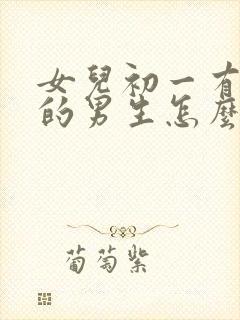 女兒初一有
的男生怎麼
葡萄紫